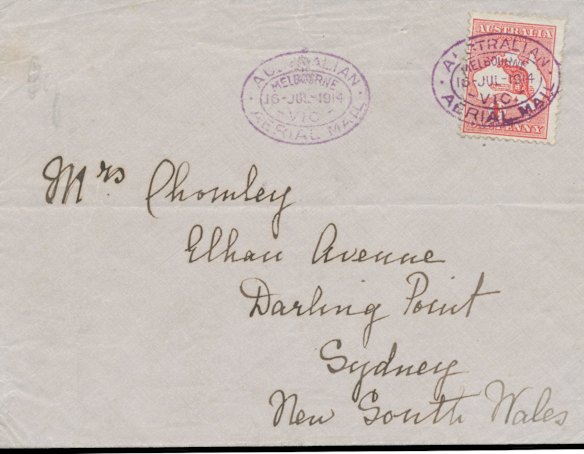 AUSTRALIAN
MELBOURNE
16-JUL-1914
VIC.
AERIAL MAIL
AUSTRALIA
AUSTRALIAN
MELBOURNE
16-JUL-1914
VIC.
AERIAL MAIL
PENNY
Mrs Chomley
Elhan Avenue
Darling Point
Sydney
New South Wales